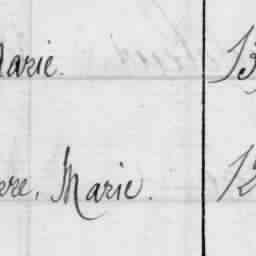 Marie. 13
ere, Marie. 12